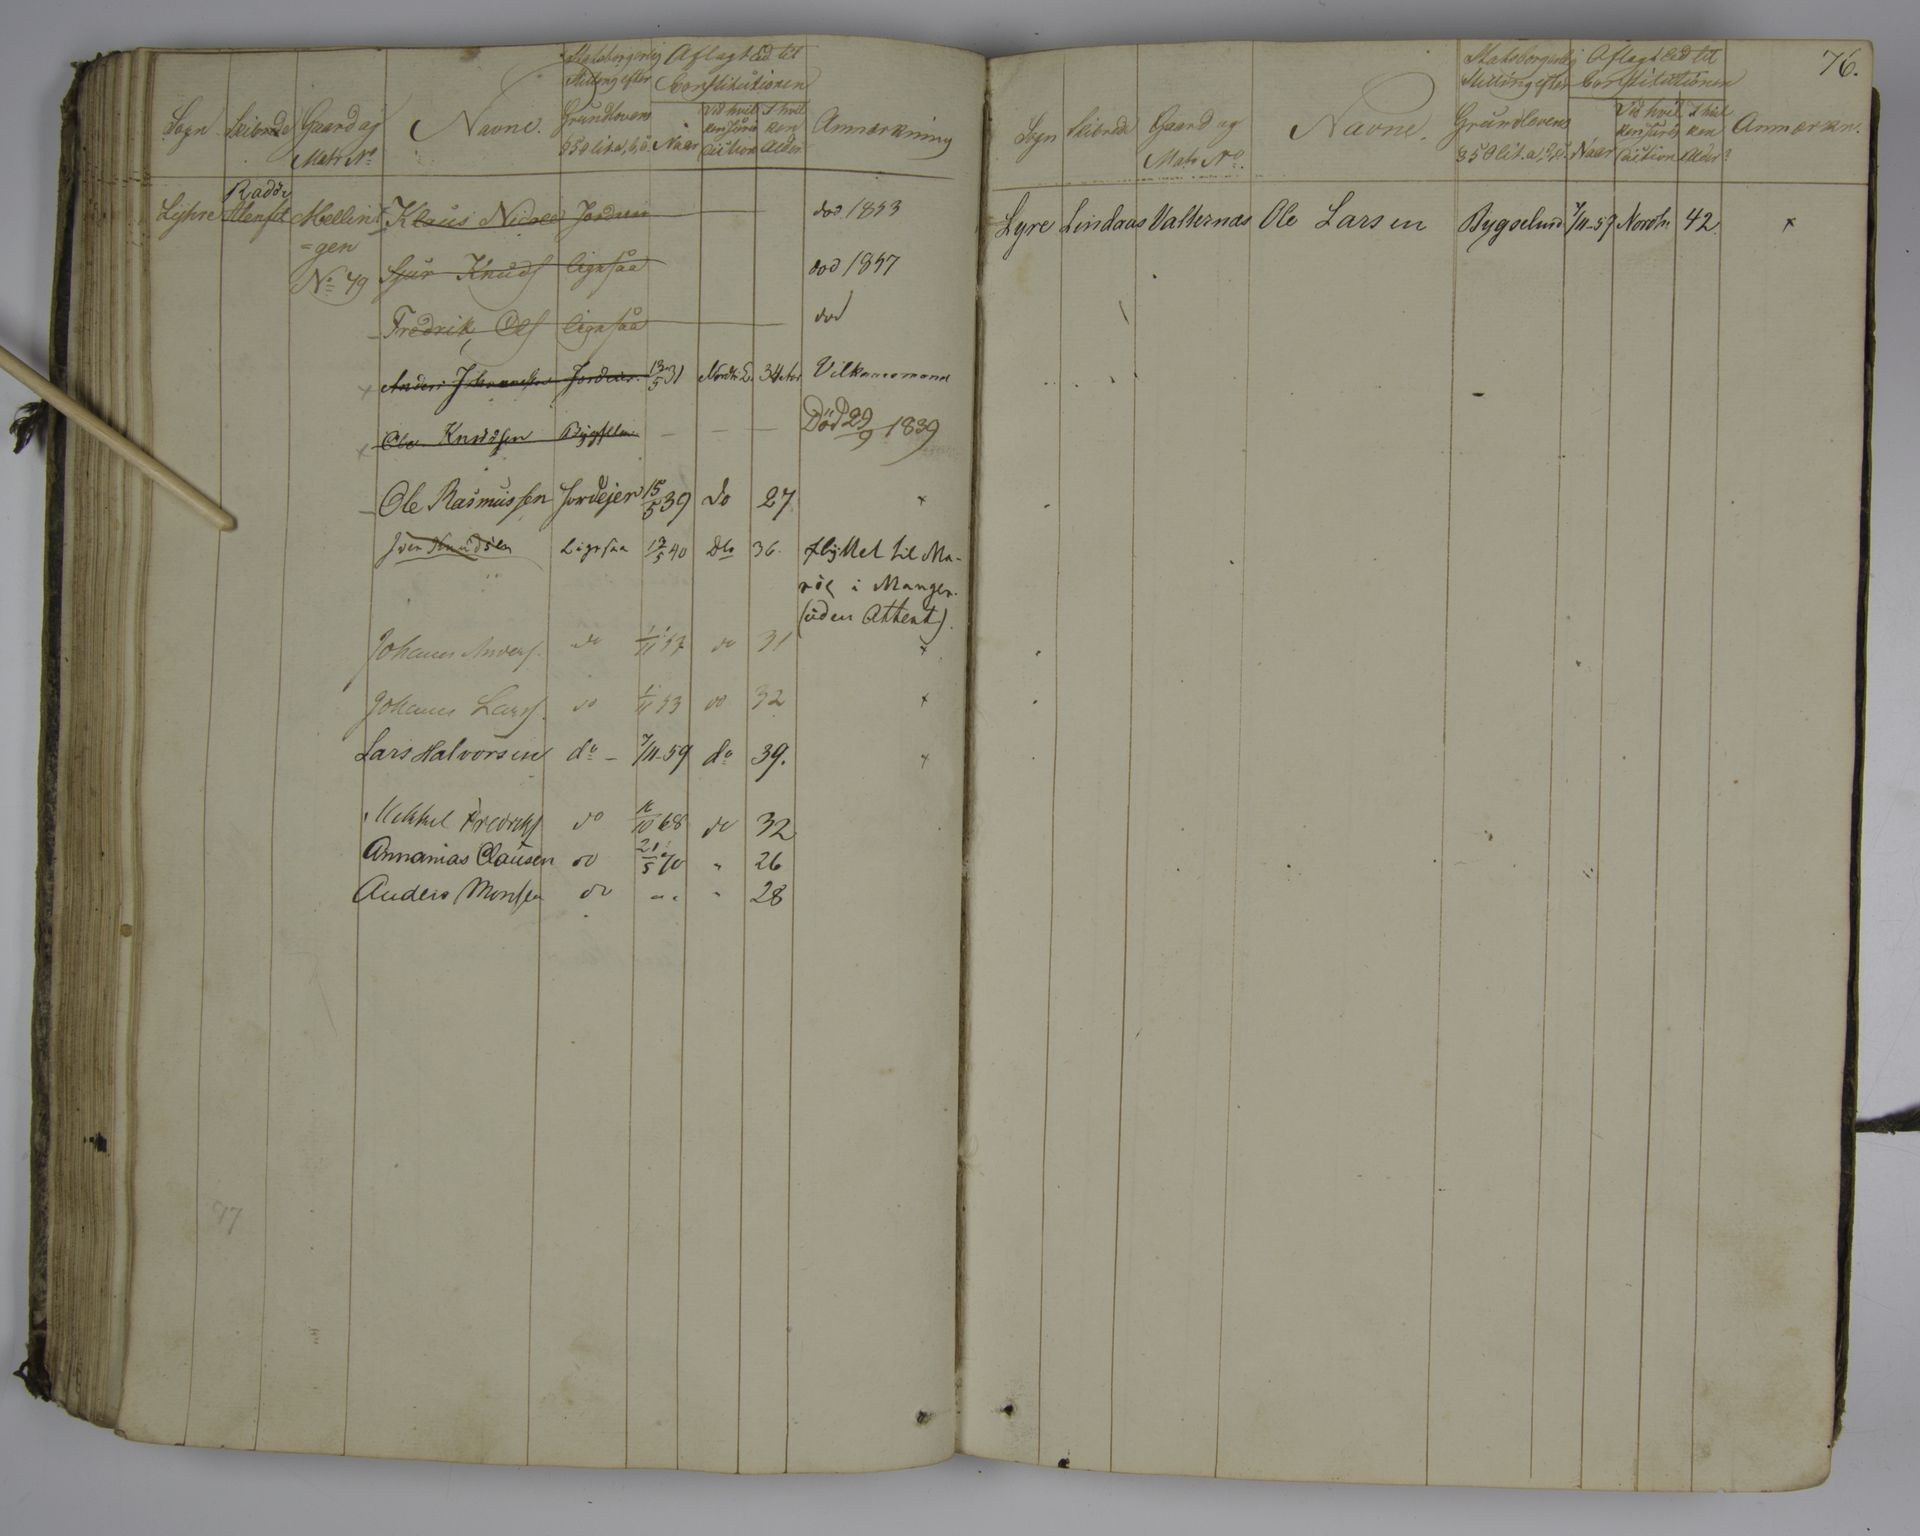 Sogn Skibrede Gaard og Matr No Navne. Statsborgerlig Stilling efter Grundlovens § 50 lit. a, b, c. Aflagt Ed til Constitutionen Naar Ved hvilken Jurisdiction I hvilken Alder Anmærkning
Lyhre Radøy Alenfit Mellingen No 79 Klaus Nidsen Jordeier død 1853
Sjur Knuds ligesaa død 1857
Fredrik Ols ligesaa død
Anders Johannessen Jordeier 13/5 31 Nordh. L. 34 Aar Vilkaarsmand
Ole Knudsen Bygselm Død 29/9 1839
Ole Rasmussen Jordejer 15/5 39 do 27 x
Iver Knudsen Ligesaa 13/5 40 Do 36. flyttet til Ma-
røe i Manger.
(uden Attest).
Johannes Anders. do 1/11 57 do 31 x
Johannes Lars. do 1/11 53 do 32 x
Lars Halvorsen do - 7/11-59 do 39. x
Mikkel Fredriks do 16/10 68 do 32
Annanias Clausen do 21/5 70 " 26
Anders Monsen do " " " 28
97
76.
Sogn Skibrede Gaard og Matr No. Navne. Statsborgerlig Stilling efter Grundlovens § 50 lit. a, b, c. Aflagt Ed til Constitutionen Naar Ved hvilken Jurisdiction I hvilken Alder? Anmærkn.
Lyre Lindaas Valternæs Ole Larsen Bygselmd 7/11-59 Nordh. 42. x